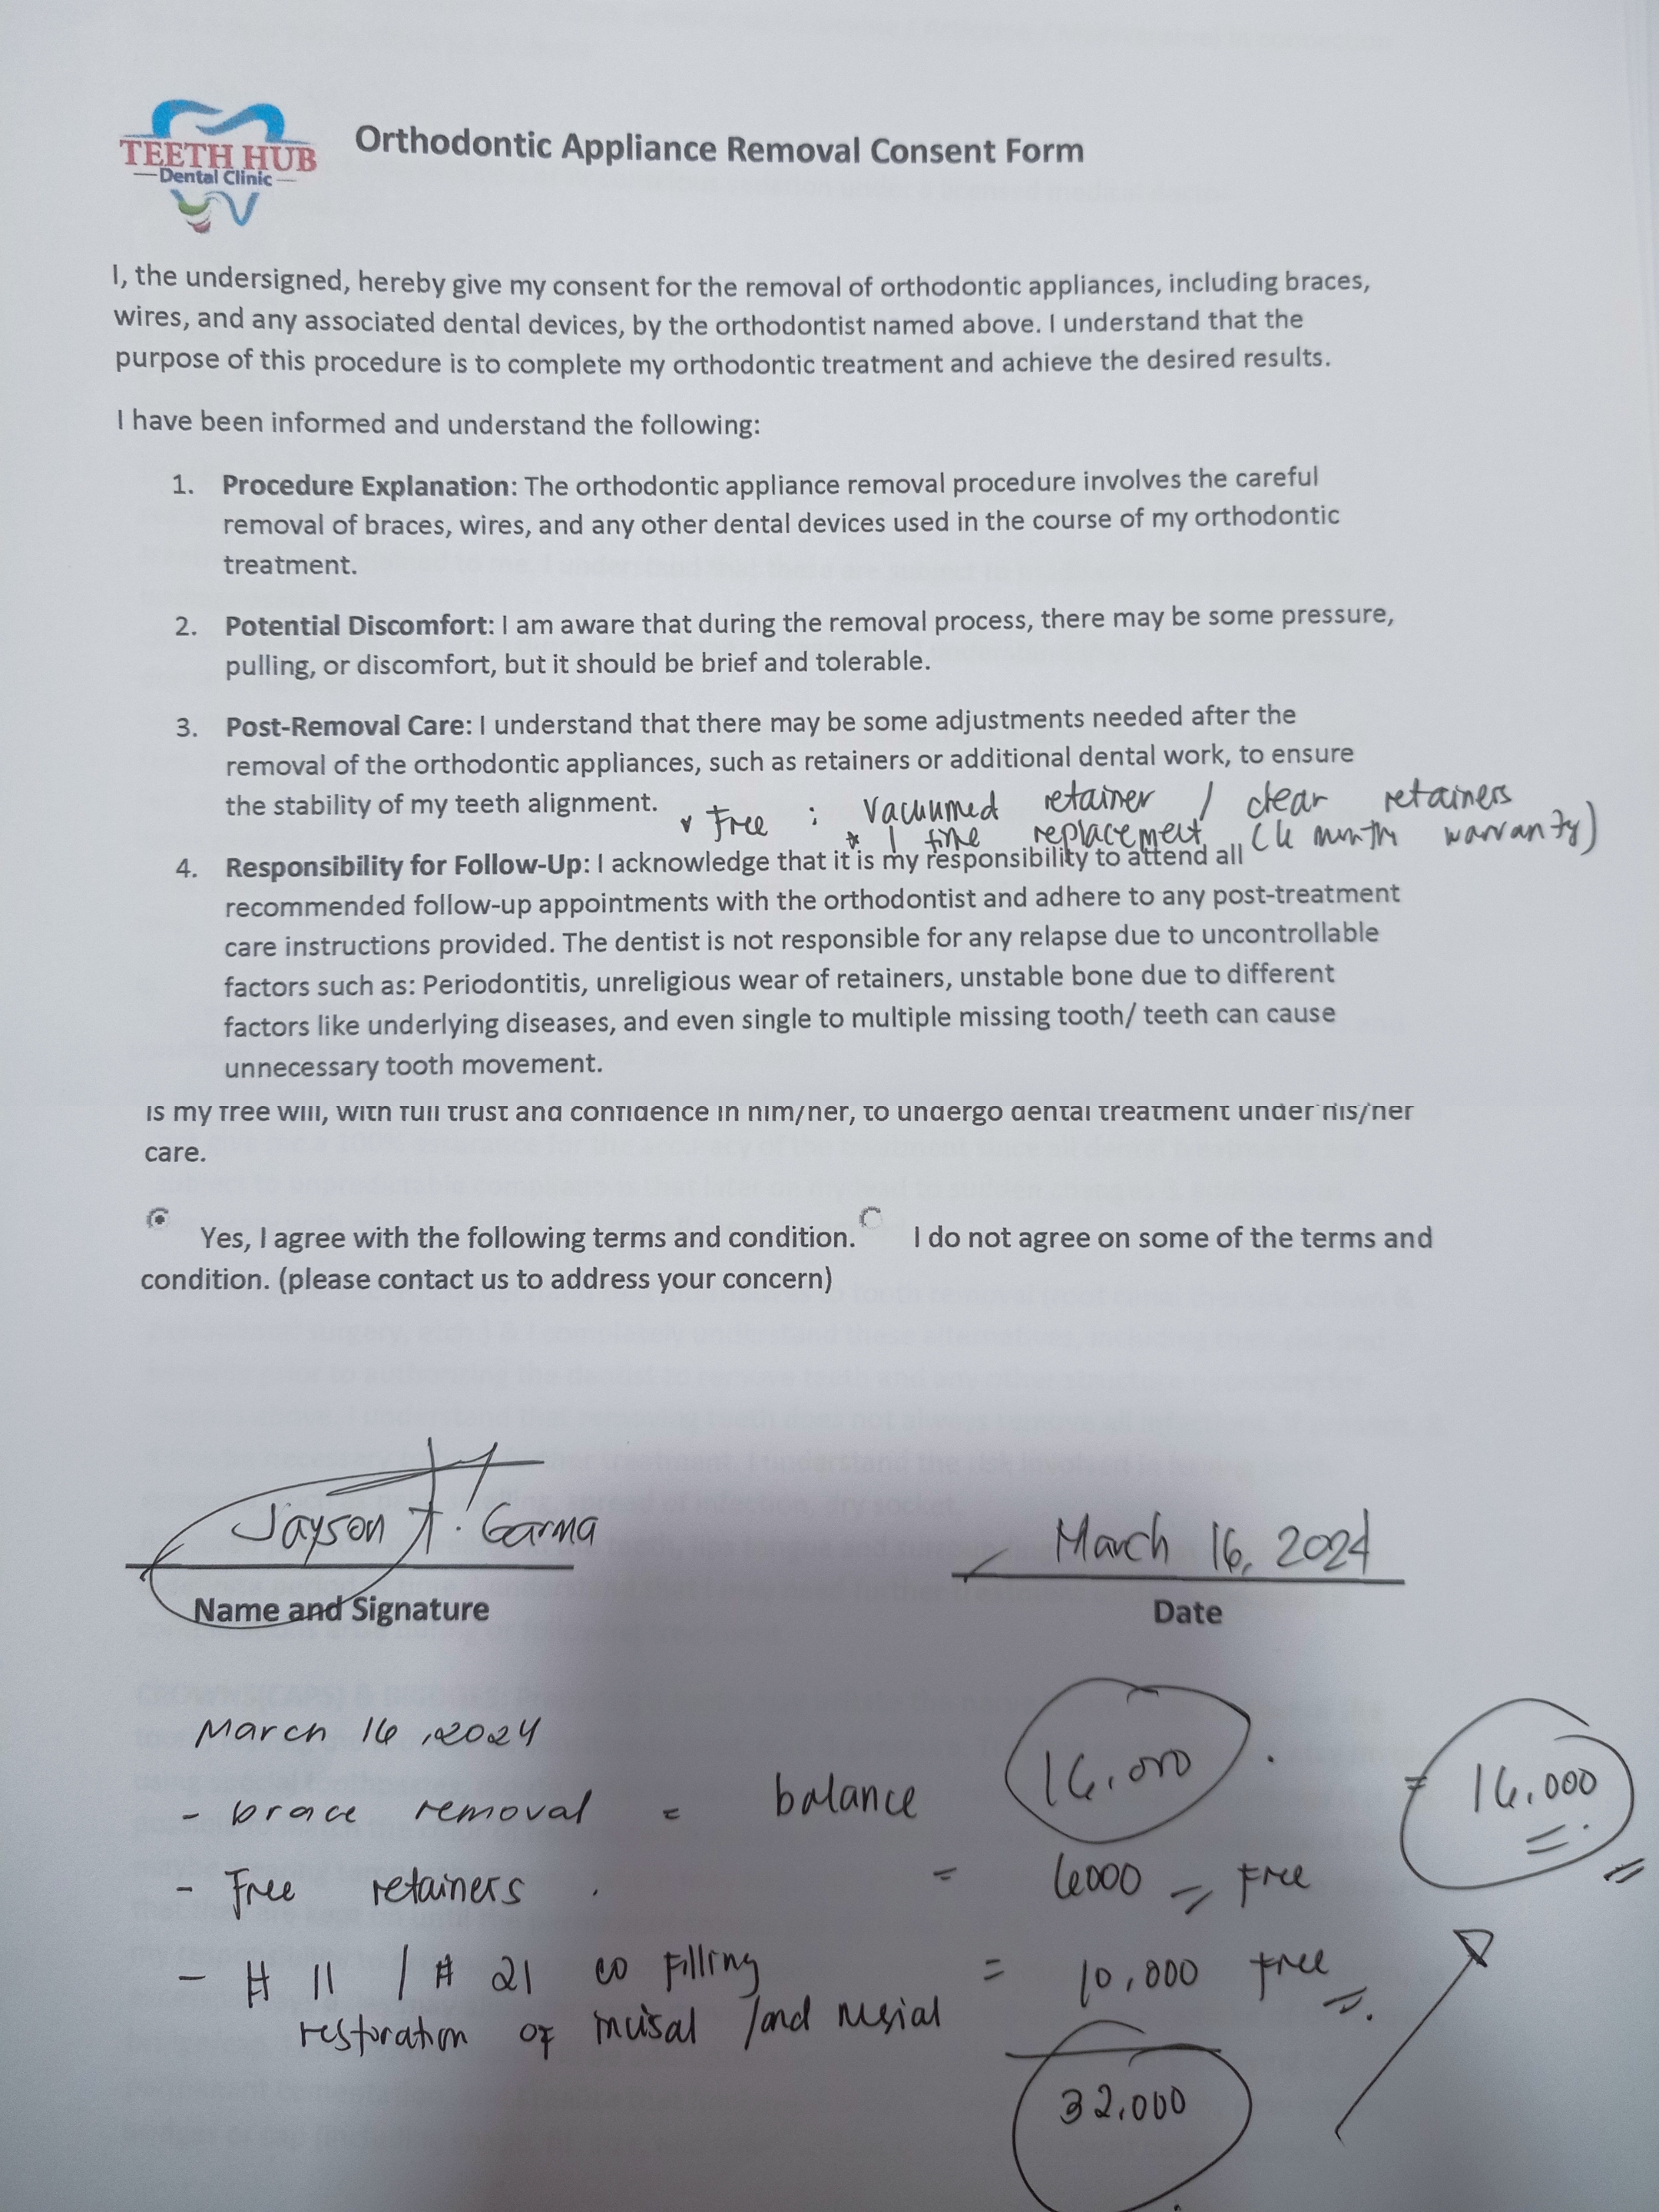 TEETH HUB
Dental Clinic
Orthodontic Appliance Removal Consent Form
I, the undersigned, hereby give my consent for the removal of orthodontic appliances, including braces,
wires, and any associated dental devices, by the orthodontist named above. I understand that the
purpose of this procedure is to complete my orthodontic treatment and achieve the desired results.
I have been informed and understand the following:
1. Procedure Explanation: The orthodontic appliance removal procedure involves the careful
removal of braces, wires, and any other dental devices used in the course of my orthodontic
treatment.
2. Potential Discomfort: I am aware that during the removal process, there may be some pressure,
pulling, or discomfort, but it should be brief and tolerable.
3. Post-Removal Care: I understand that there may be some adjustments needed after the
removal of the orthodontic appliances, such as retainers or additional dental work, to ensure
the stability of my teeth alignment.
Free : Vacuumed retainer / clear retainers
* 1 time replacement (6 month warranty)
4. Responsibility for Follow-Up: I acknowledge that it is my responsibility to attend all
recommended follow-up appointments with the orthodontist and adhere to any post-treatment
care instructions provided. The dentist is not responsible for any relapse due to uncontrollable
factors such as: Periodontitis, unreligious wear of retainers, unstable bone due to different
factors like underlying diseases, and even single to multiple missing tooth/ teeth can cause
unnecessary tooth movement.
is my free will, with full trust and confidence in him/her, to undergo dental treatment under his/her
care.
Yes, I agree with the following terms and condition. I do not agree on some of the terms and
condition. (please contact us to address your concern)
Jayson A. Garma March 16, 2024
Name and Signature Date
March 16, 2024
- brace removal = balance 16,000 = 16,000
- Free retainers = 6000 = Free
- # 11 / # 21 co Filling = 10,000 free
restoration of incisal / and mesial
32,000